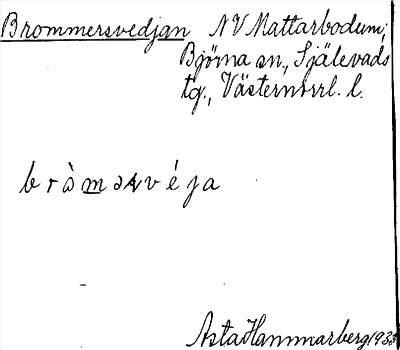 Brommersvedjan NV Mattarbodum;
Björna sn., Själevads
tg., Västernorrl. l.
bròmərvéja
Asta Hammarberg 1933